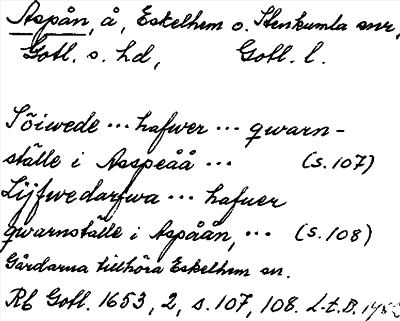 Aspån, å, Eskelhem o. Stenkumla snr,
Gotl. s. hd, Gotl. l.
Söiwede ... hafwer ... qwarn-
ställe i Asspeåå ... (s. 107)
Lijfwedarfwa ... hafuer
qwarnställe i Aspåån, ... (s. 108)
Gårdarna tillhöra Eskelhem sn.
Rb Gotl. 1653, 2, s. 107, 108. L.t.B.